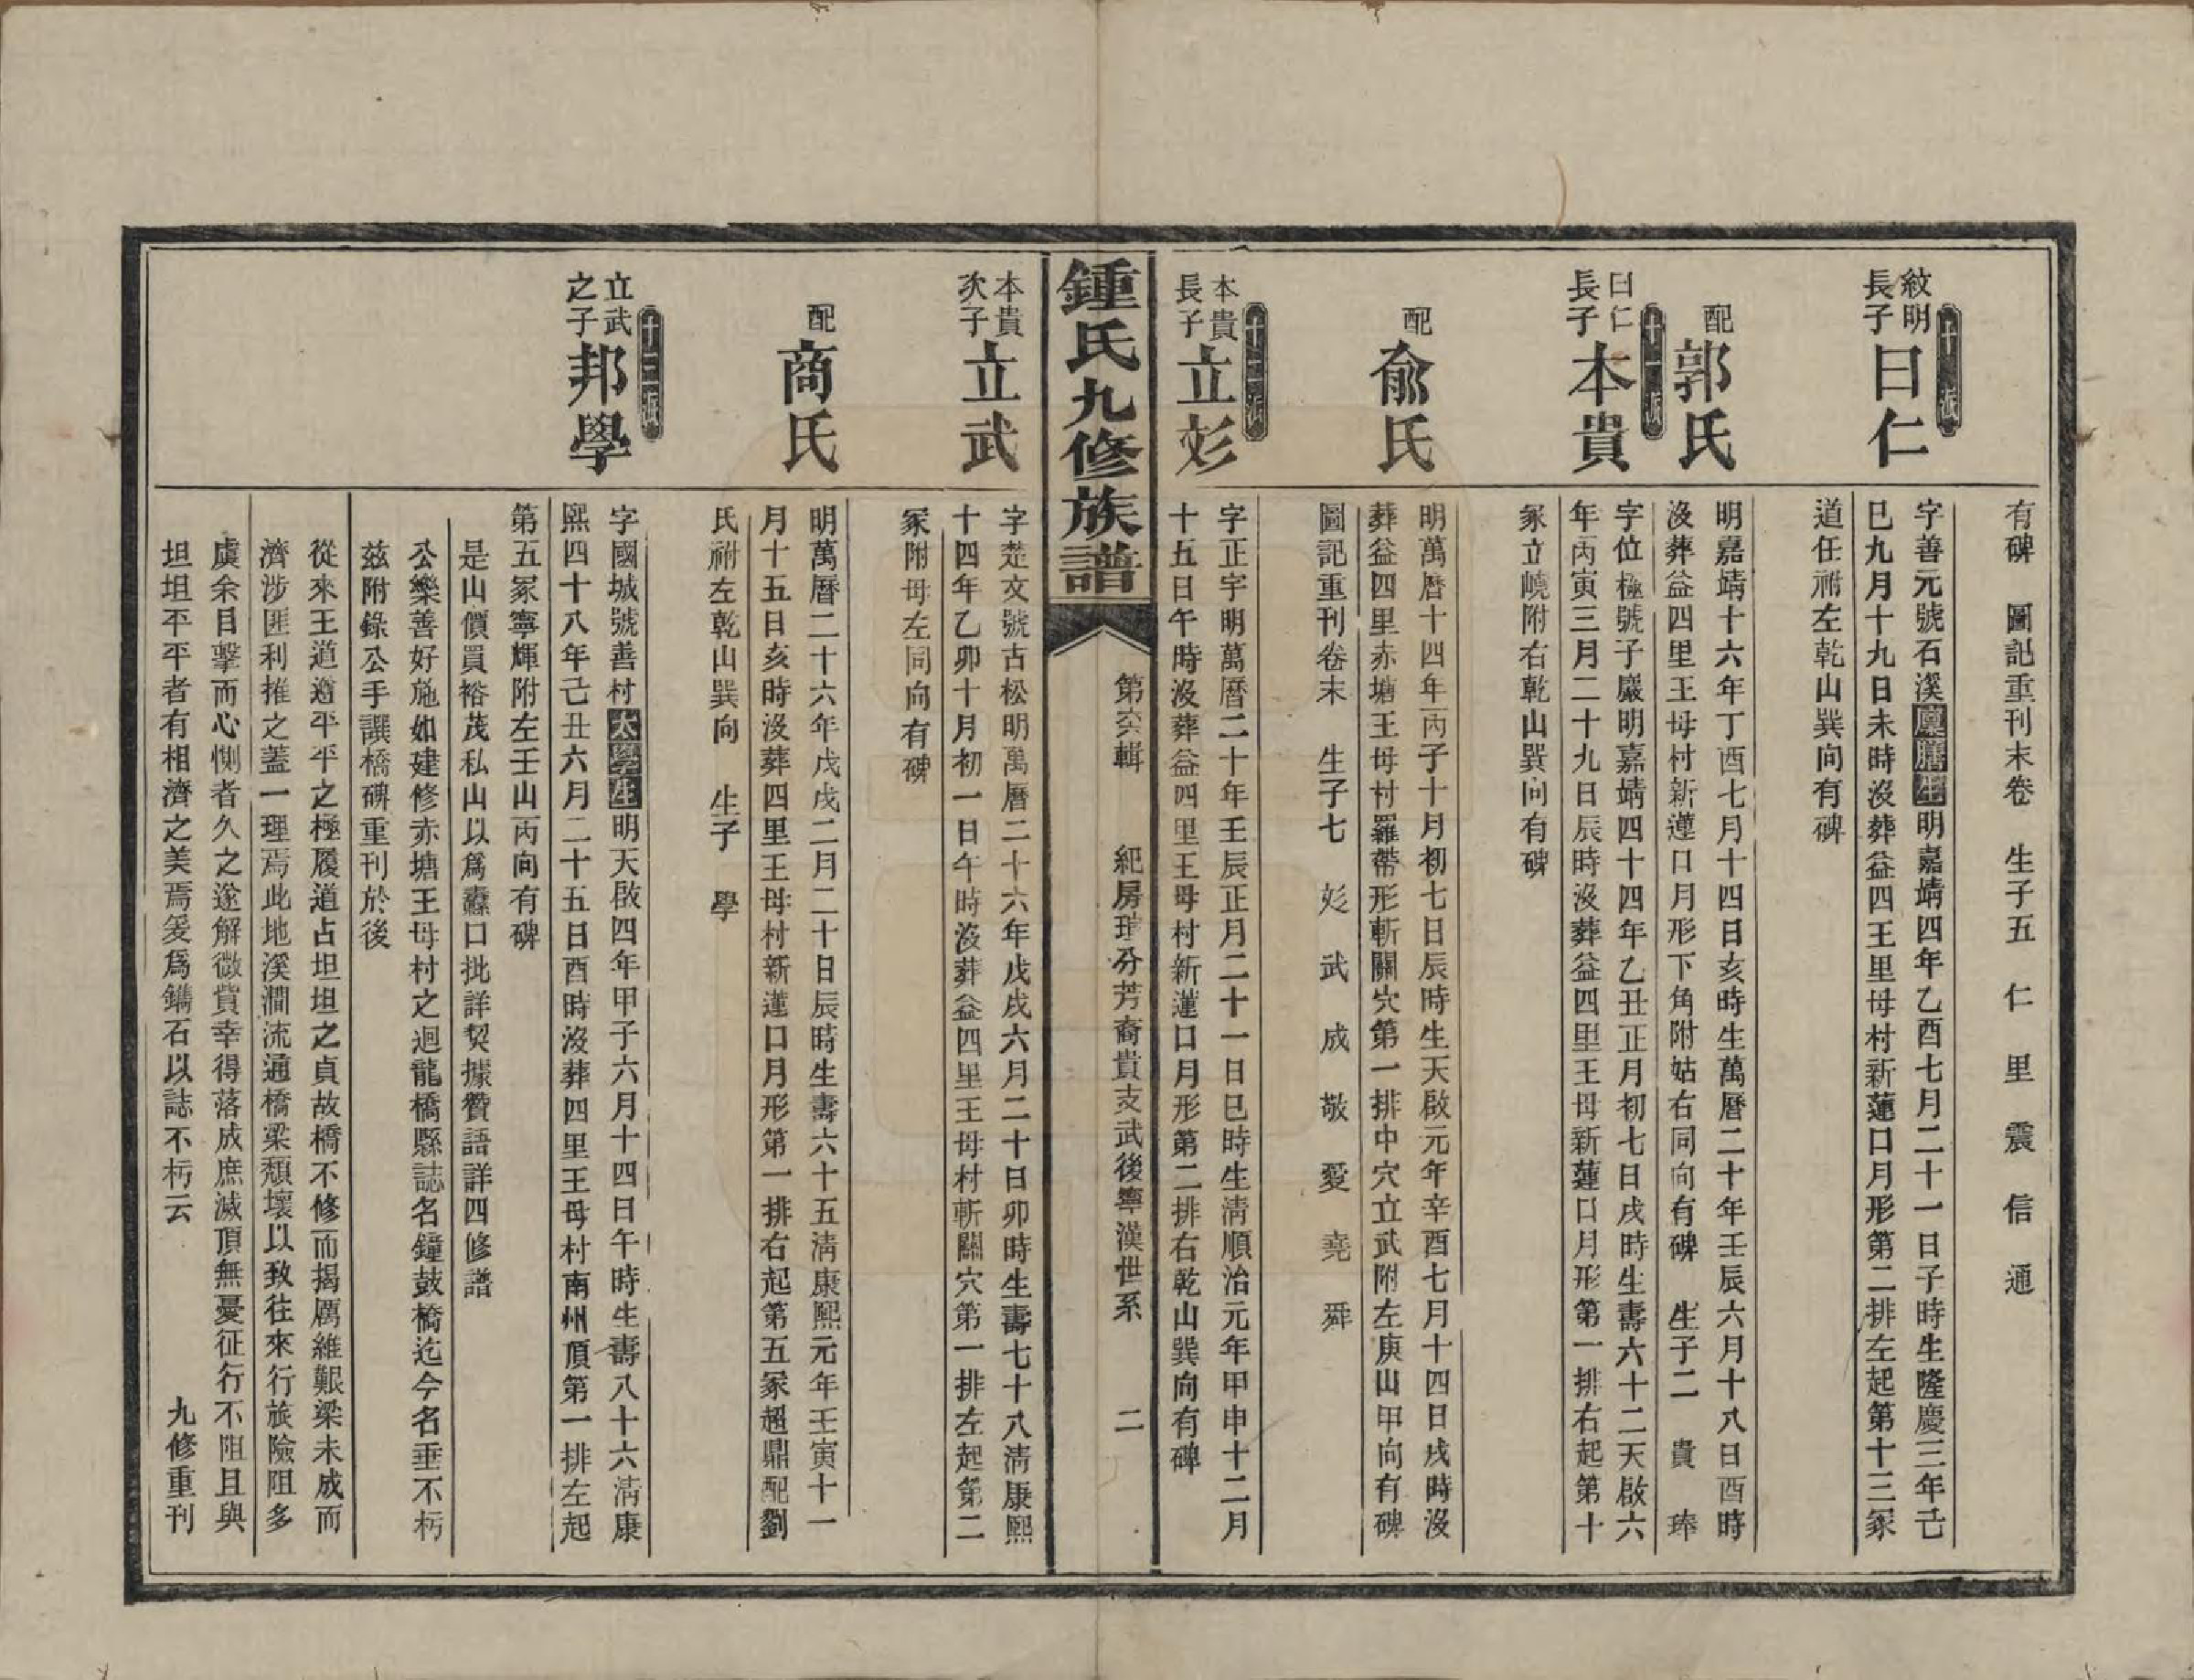 有碑　圖記重刊末卷　生子五　仁　里　震　信　通
十派
紋明
長子
曰仁
字善元號石溪廩膳生明嘉靖四年乙酉七月二十一日子時生隆慶三年己
巳九月十九日未時沒葬益四王里母村新蓮口月形第二排左起第十三冢
道任祔左乾山巽向有碑
配
郭氏
明嘉靖十六年丁酉七月十四日亥時生萬曆二十年壬辰六月十八日酉時
沒葬益四里王母村新蓮口月形下角附姑右同向有碑　生子二　貴　琫
十一派
曰仁
長子
本貴
字位極號子巖明嘉靖四十四年乙丑正月初七日戌時生壽六十二天啟六
年丙寅三月二十九日辰時沒葬益四里王母新蓮口月形第一排右起第十
冢立嶢附右乾山巽向有碑
配
俞氏
明萬曆十四年丙子十月初七日辰時生天啟元年辛酉七月十四日戌時沒
葬益四里赤塘王母村羅帶形斬關穴第一排中穴立武附左庚山甲向有碑
圖記重刊卷末　生子七　彣　武　成　敬　愛　堯　舜
十二派
本貴
長子
立彣
字正宇明萬曆二十年壬辰正月二十一日巳時生清順治元年甲申十二月
十五日午時沒葬益四里王母村新蓮口月形第二排右乾山巽向有碑
鍾氏九修族譜
第六輯　紀房瑞分芳裔貴支武後寧漢世系　二
本貴
次子
立武
字楚文號古松明萬曆二十六年戊戌六月二十日卯時生壽七十八清康熙
十四年乙卯十月初一日午時沒葬益四里王母村斬關穴第一排左起第二
冢附母左同向有碑
配
商氏
明萬曆二十六年戊戌二月二十日辰時生壽六十五清康熙元年壬寅十一
月十五日亥時沒葬四里王母村新蓮口月形第一排右起第五冢超鼎配劉
氏祔左乾山巽向　生子　學
十三派
立武
之子
邦學
字國城號善村太學生明天啟四年甲子六月十四日午時生壽八十六清康
熙四十八年己丑六月二十五日酉時沒葬四里王母村南州頂第一排左起
第五冢寧輝附左壬山丙向有碑
是山價買裕茂私山以爲蠹口批詳契據贊語詳四修譜
公樂善好施如建修赤塘王母村之迴龍橋縣誌名鐘鼓橋迄今名垂不朽
茲附錄公手譔橋碑重刊於後
從來王道遵平平之極履道占坦坦之貞故橋不修而揭厲維艱梁未成而
濟涉匪利推之蓋一理焉此地溪澗流通橋梁頹壞以致往來行旅險阻多
虞余目擊而心惻者久之遂解微貲幸得落成庶滅頂無憂征行不阻且與
坦坦平平者有相濟之美焉爰爲鐫石以誌不朽云
九修重刊